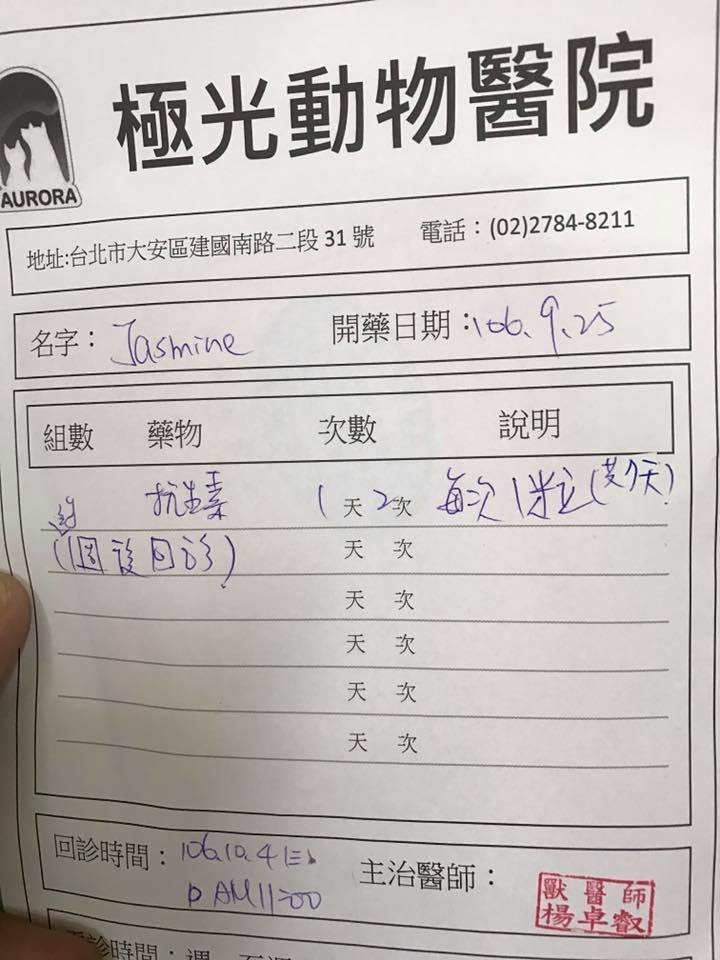 極光動物醫院
AURORA
地址:台北市大安區建國南路二段 31 號 電話：(02)2784-8211
名字： Jasmine 開藥日期：106.9.25
組數 藥物 次數 說明
抗生素 1 天 2 次 每次1粒(共7天)
天 次
天 次
天 次
天 次
天 次
回診時間： 106.10.4(三) 主治醫師：
AM11:00
獸醫師
楊卓叡